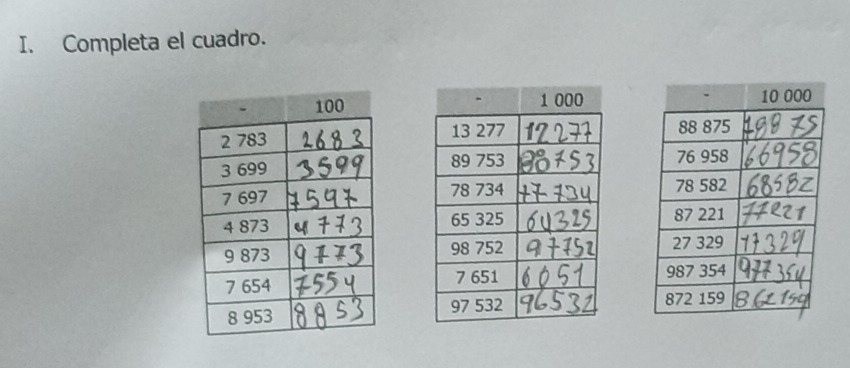 I. Completa el cuadro.
- 100
2 783 2683
3 699 3599
7 697 7597
4 873 4773
9 873 9773
7 654 7554
8 953 8853
- 1 000
13 277 12277
89 753 88753
78 734 77734
65 325 64325
98 752 97752
7 651 6651
97 532 96532
- 10 000
88 875 78875
76 958 66958
78 582 68582
87 221 77221
27 329 17329
987 354 977354
872 159 862159